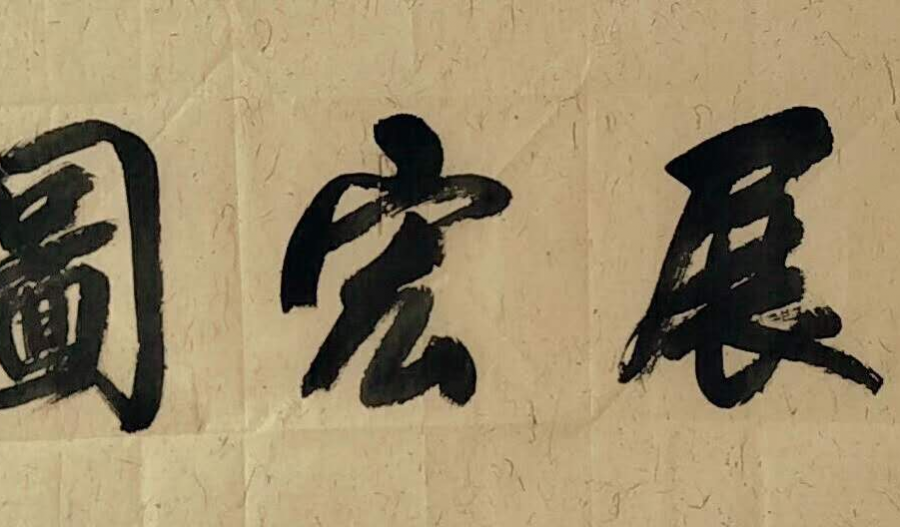 展宏圖